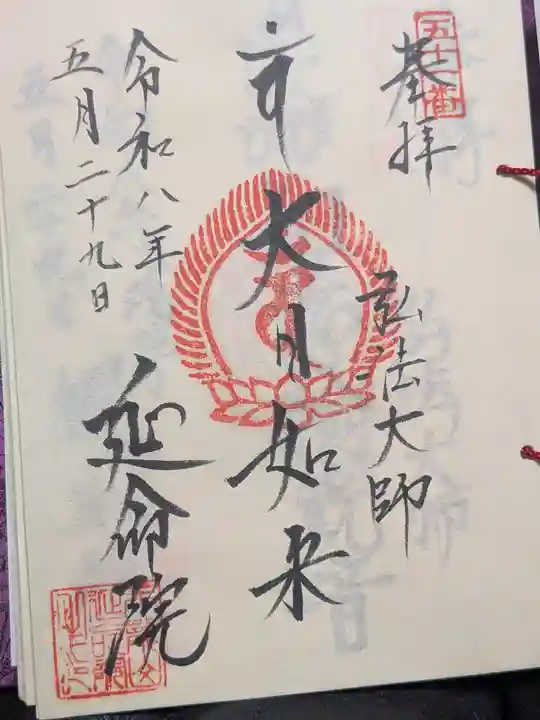 五十一番
奉拝
弘法大師
大日如来
延命院
令和八年
五月二十九日